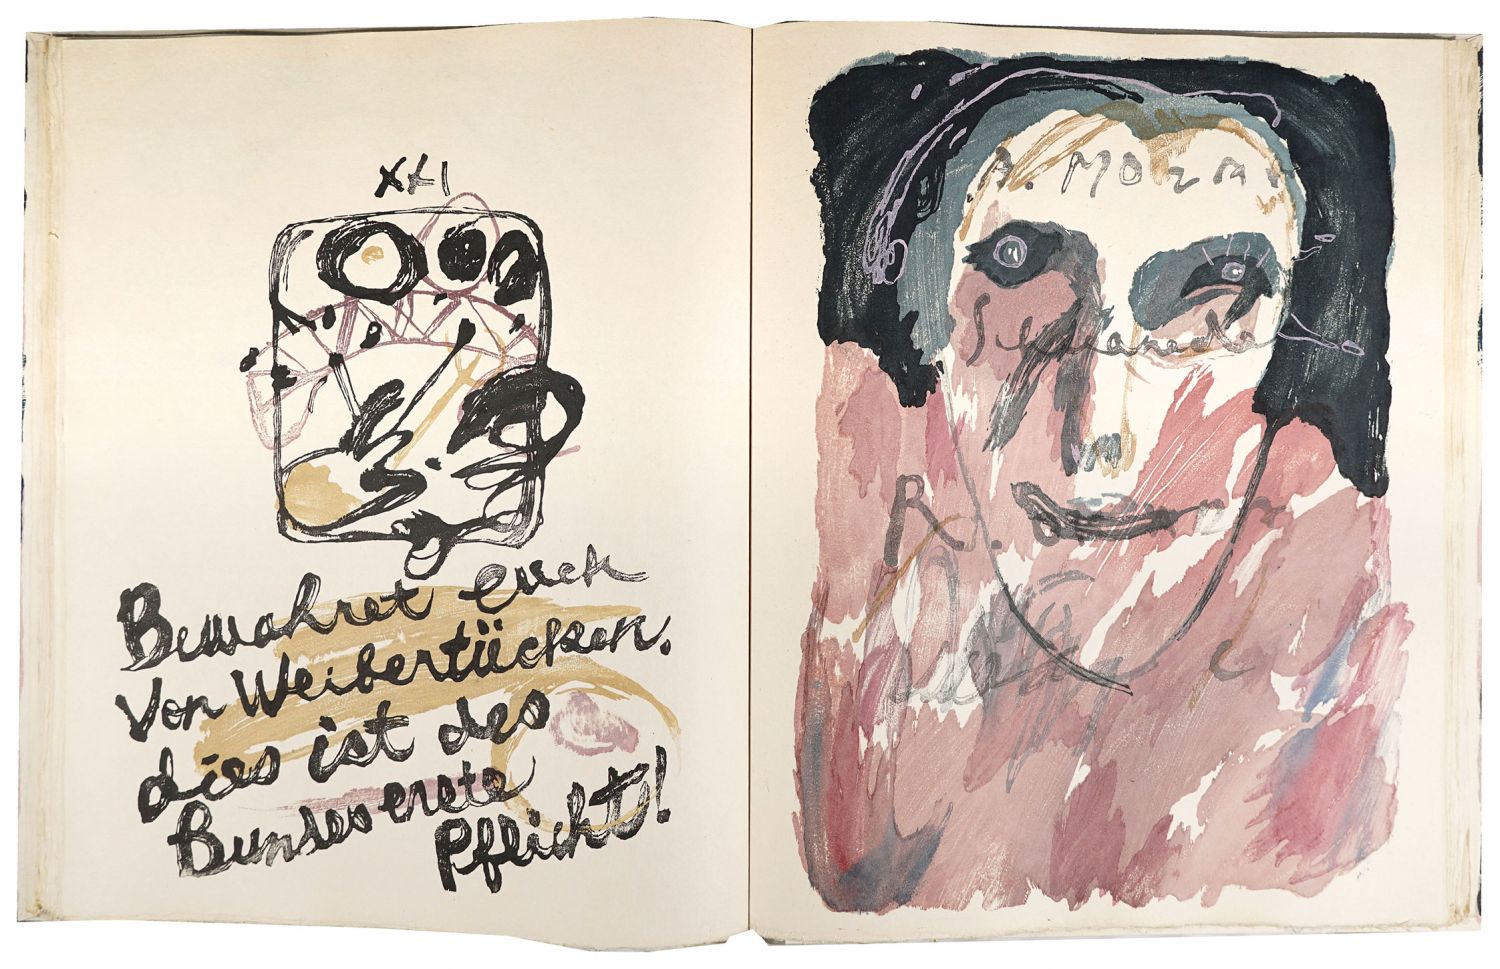 XXI
Bewahret euch
Von Weibertücken.
dies ist des
Bundes erste
Pflicht!
A. MOZA
R.